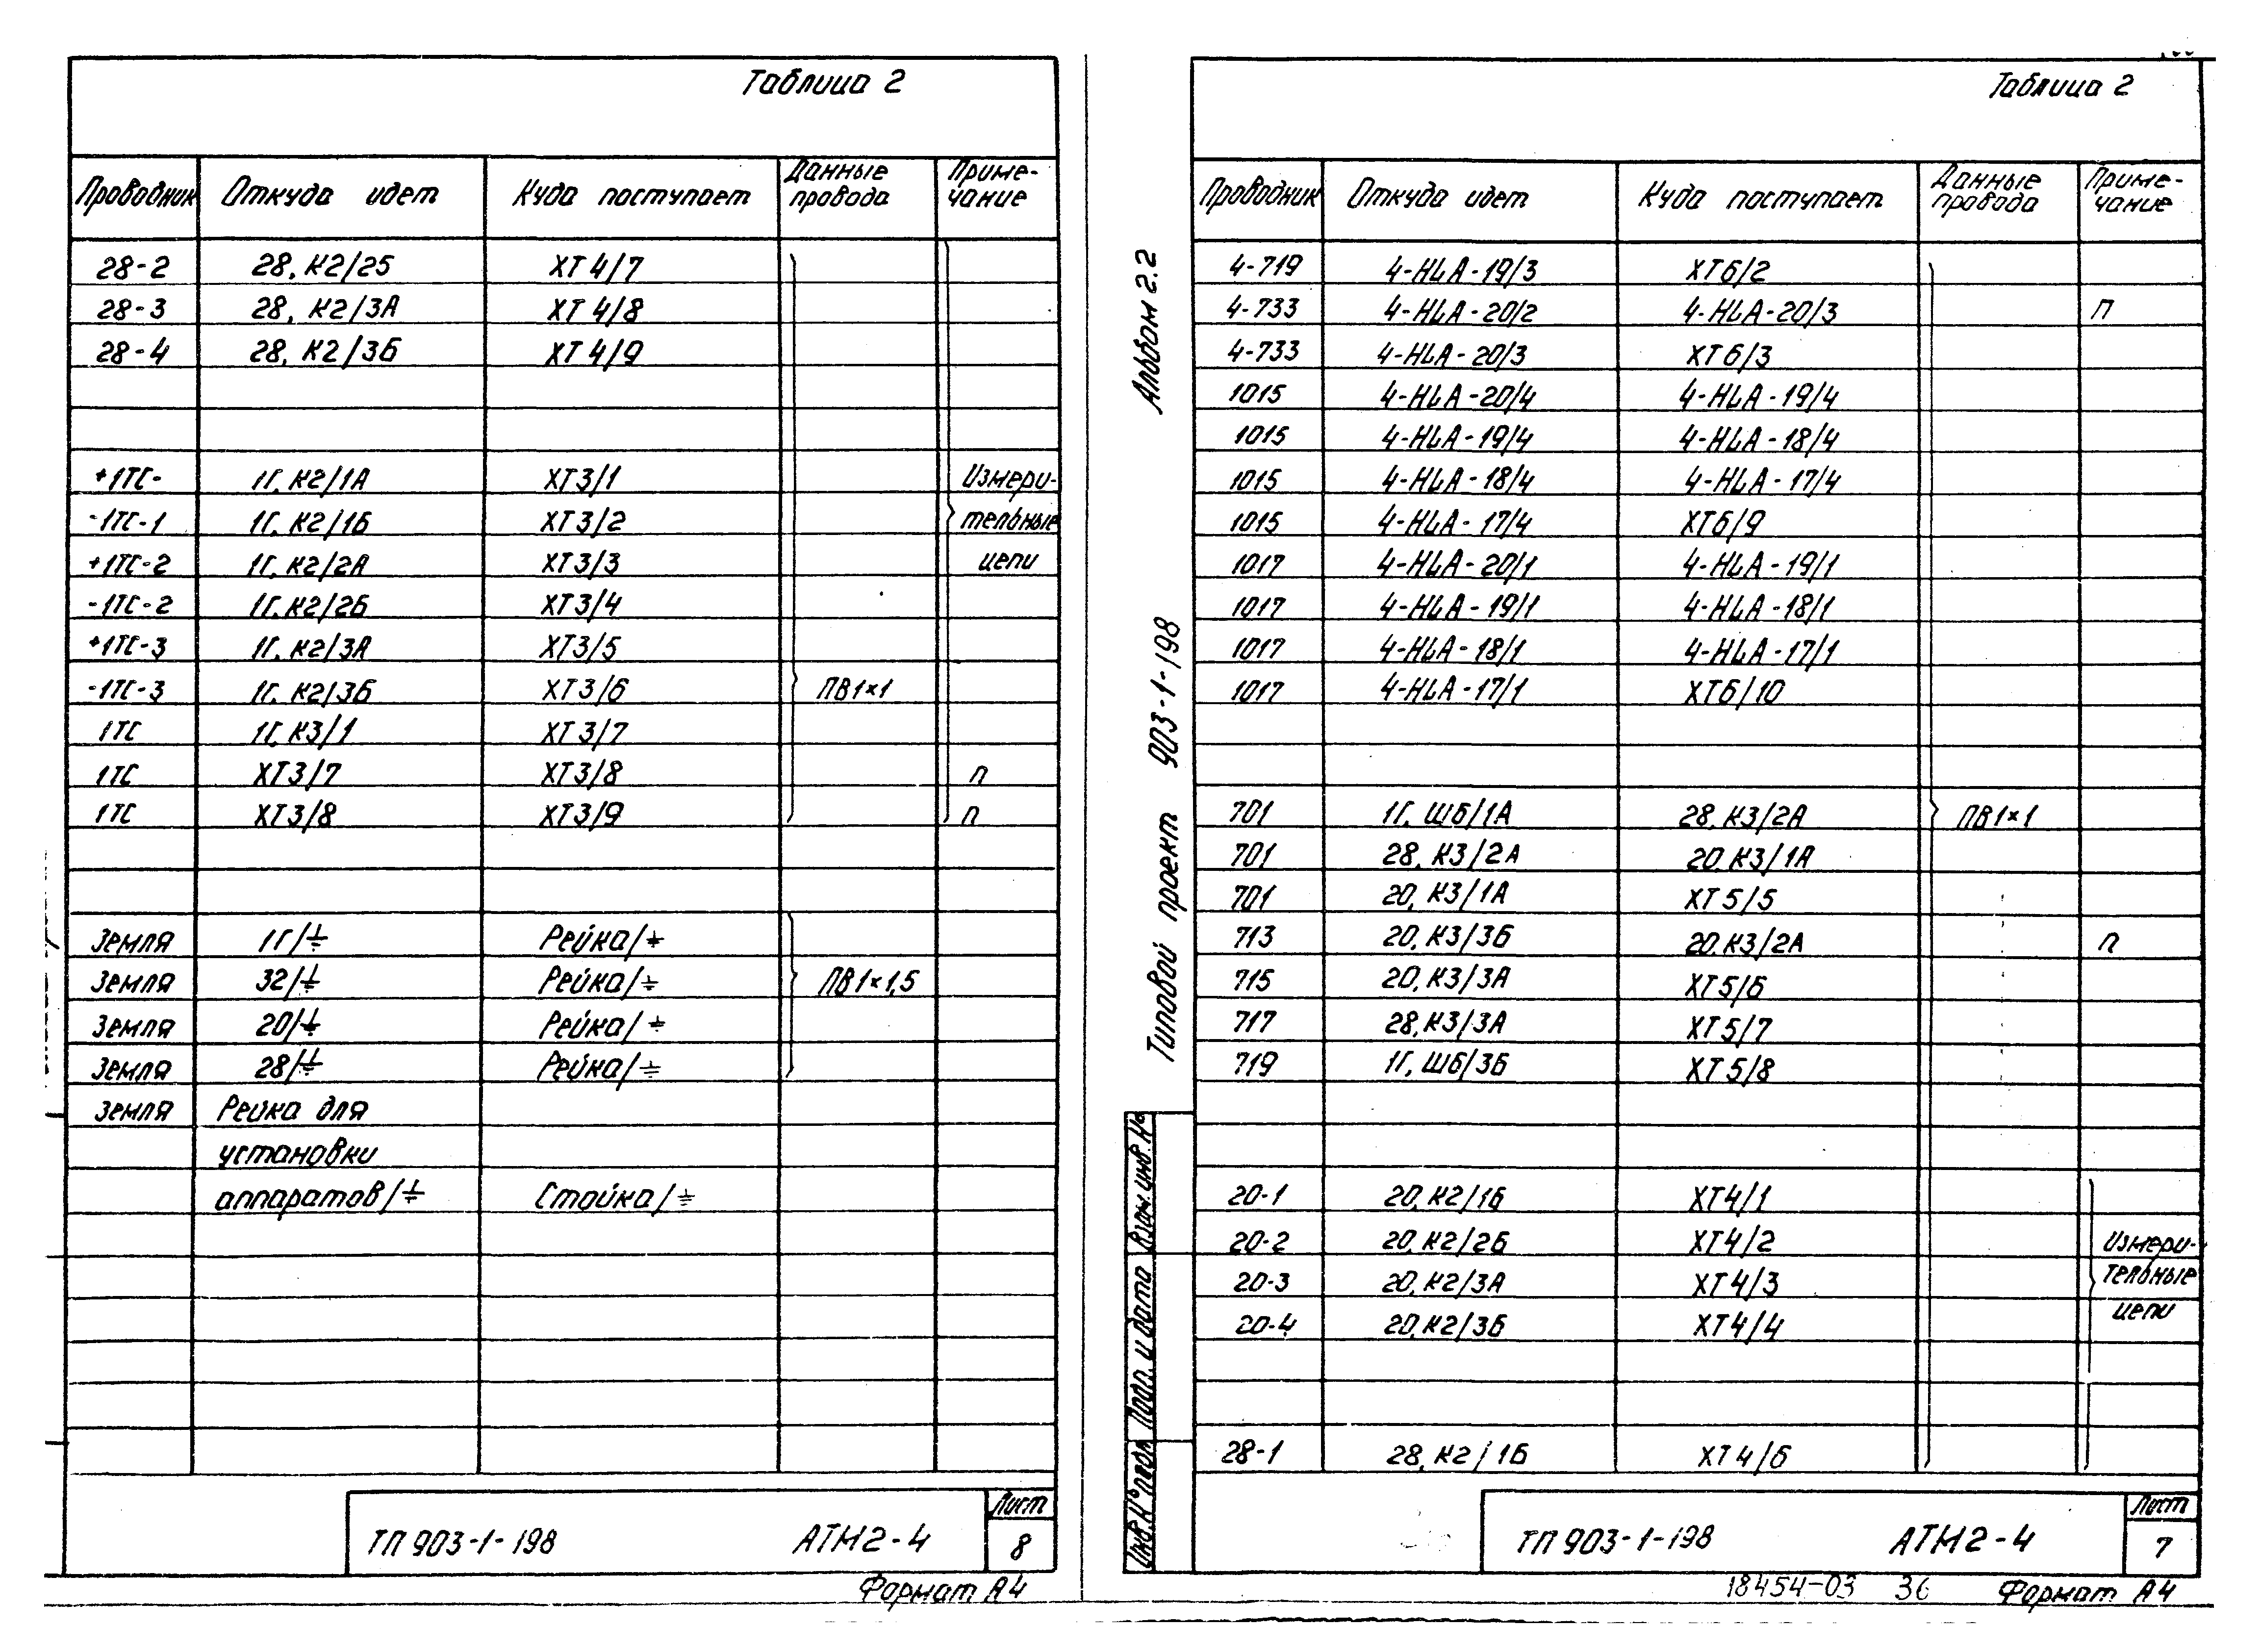 Таблица 2
Проводник Откуда идет Куда поступает Данные провода Приме-чание
28-2 28, К2/25 ХТ4/7
28-3 28, К2/3А ХТ4/8
28-4 28, К2/3Б ХТ4/9
+1ТС- 1Г, К2/1А ХТ3/1 Измери-
-1ТС-1 1Г, К2/1Б ХТ3/2 тельные
+1ТС-2 1Г, К2/2А ХТ3/3 цепи
-1ТС-2 1Г, К2/2Б ХТ3/4
+1ТС-3 1Г, К2/3А ХТ3/5
-1ТС-3 1Г, К2/3Б ХТ3/6 ПВ1×1
1ТС 1Г, К3/1 ХТ3/7
1ТС ХТ3/7 ХТ3/8 п
1ТС ХТ3/8 ХТ3/9 п
Земля 1Г/⏚ Рейка/⏚
Земля 32/⏚ Рейка/⏚ ПВ1×1,5
Земля 20/⏚ Рейка/⏚
Земля 28/⏚ Рейка/⏚
Земля Рейка для
установки
аппаратов/⏚ Стойка/⏚
ТП 903-1-198 АТМ2-4 Лист 8
Формат А4
Таблица 2
Проводник Откуда идет Куда поступает Данные провода Приме-чание
4-719 4-HLA-19/3 ХТ6/2
4-733 4-HLA-20/2 4-HLA-20/3 п
4-733 4-HLA-20/3 ХТ6/3
1015 4-HLA-20/4 4-HLA-19/4
1015 4-HLA-19/4 4-HLA-18/4
1015 4-HLA-18/4 4-HLA-17/4
1015 4-HLA-17/4 ХТ6/9
1017 4-HLA-20/1 4-HLA-19/1
1017 4-HLA-19/1 4-HLA-18/1
1017 4-HLA-18/1 4-HLA-17/1
1017 4-HLA-17/1 ХТ6/10
701 1Г, Ш6/1А 28, К3/2А ПВ1×1
701 28, К3/2А 20, К3/1А
701 20, К3/1А ХТ5/5
713 20, К3/3Б 20, К3/2А п
715 20, К3/3А ХТ5/6
717 28, К3/3А ХТ5/7
719 1Г, Ш6/3Б ХТ5/8
20-1 20, К2/1Б ХТ4/1
20-2 20, К2/2Б ХТ4/2 Измери-
20-3 20, К2/3А ХТ4/3 тельные
20-4 20, К2/3Б ХТ4/4 цепи
28-1 28, К2/1Б ХТ4/6
ТП 903-1-198 АТМ2-4 Лист 7
18454-03 36 Формат А4
Типовой проект 903-1-198 Альбом 2.2
Инв.№ подл. Подп. и дата Взам.инв.№